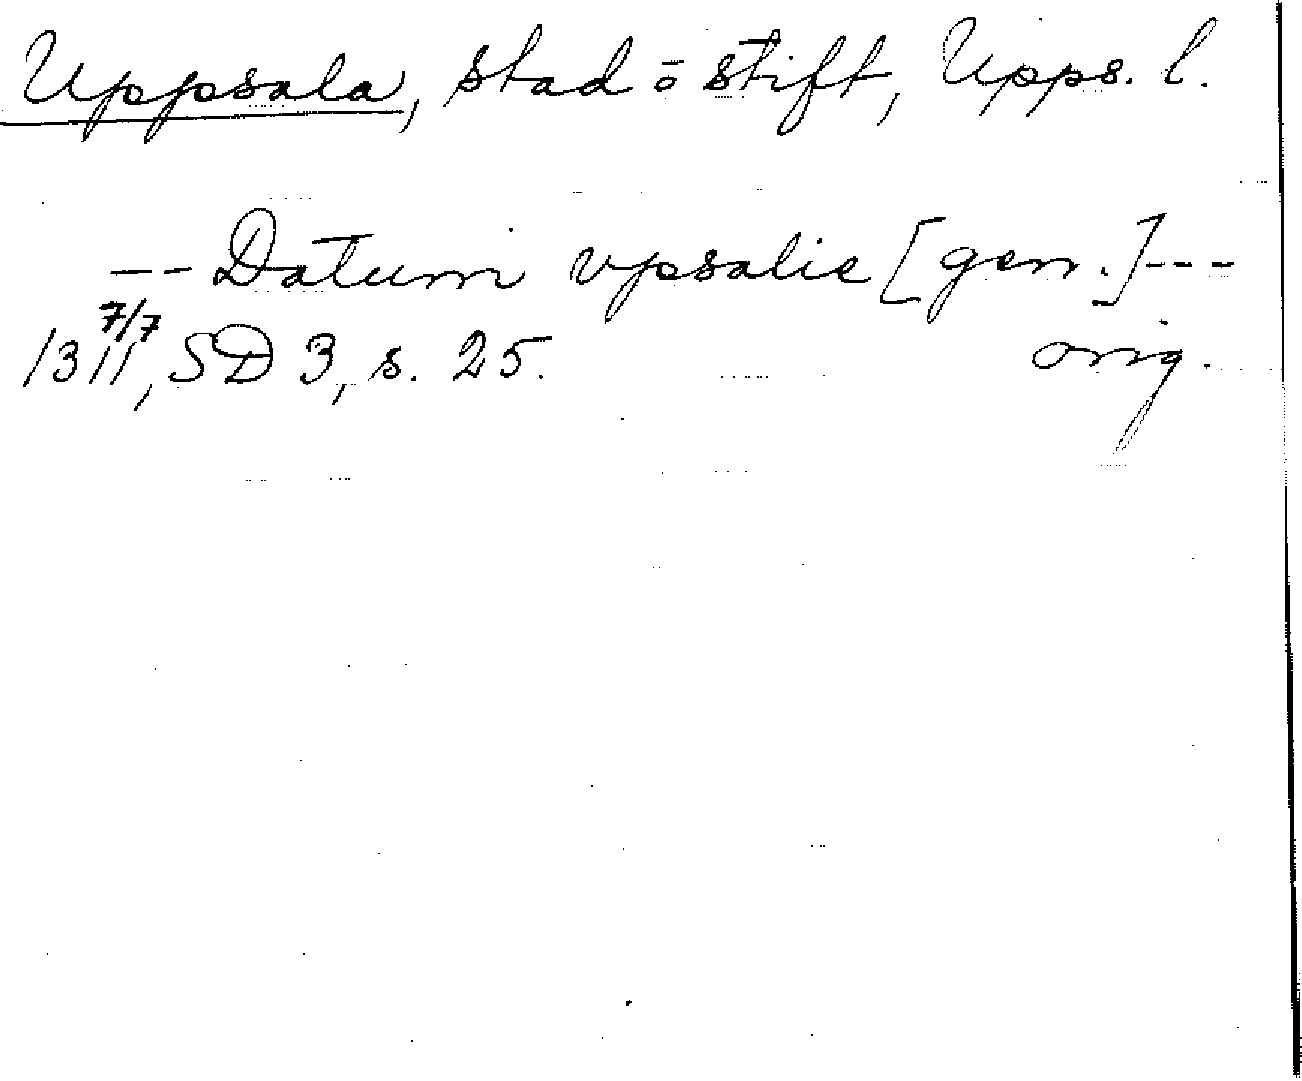 Uppsala, stad o stift, Upps. l.
-- Datum vpsalie [gen.] ---
7/7
1311, SD 3, s. 25. orig.